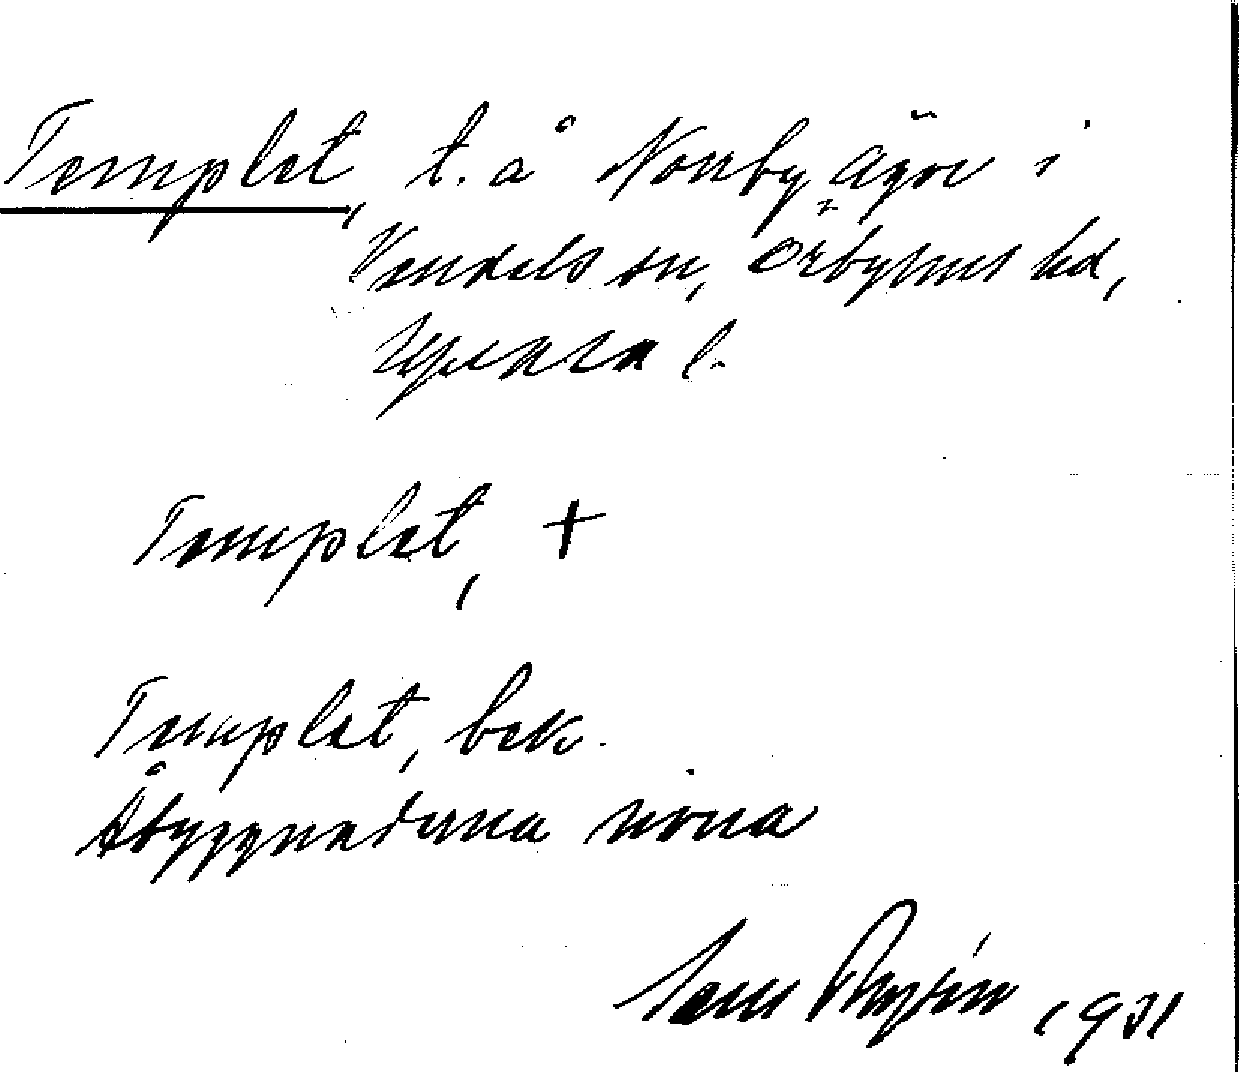 Templet, t. å Norrby ägor i
Vendels sn, Örbyhus hd,
Uppsala l.
Templet, +
Templet, bek.
Åbyggnaderna rivna
1931